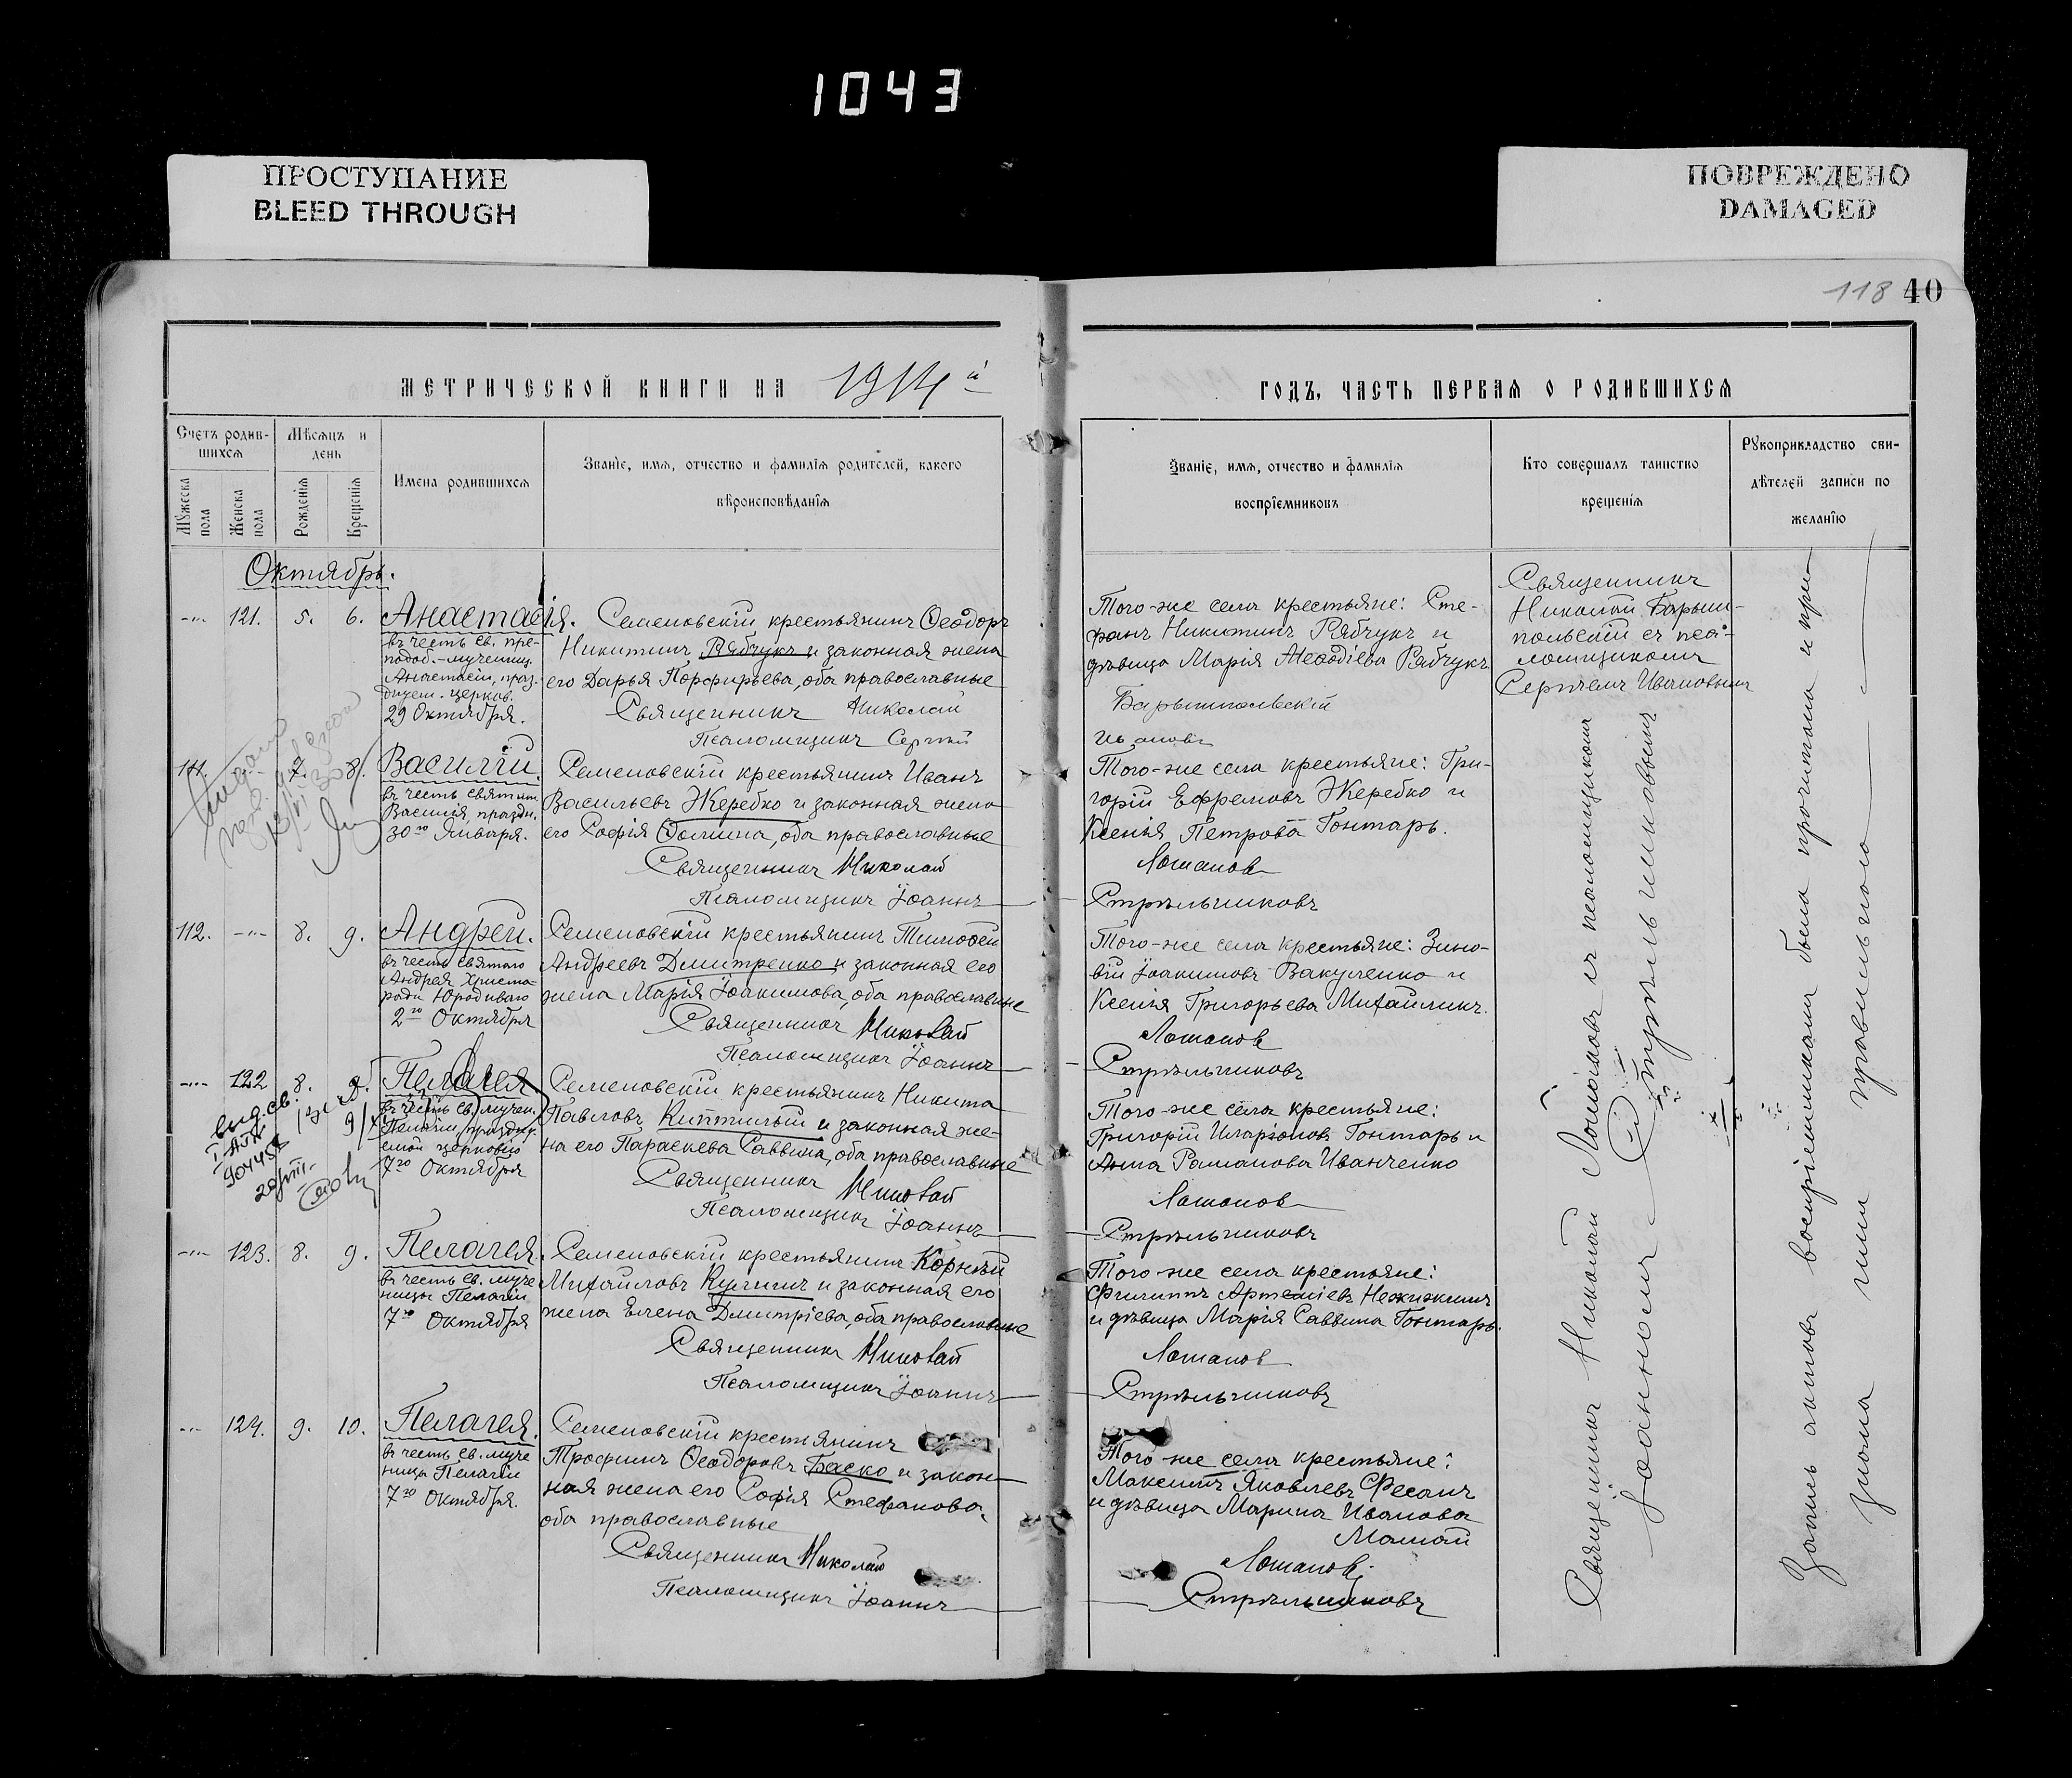 1043
ПРОСТУПАНИЕ
BLEED THROUGH
ПОВРЕЖДЕНО
DAMAGED
118 40
МЕТРИЧЕСКОЙ КНИГИ НА 1914й
ГОДЪ, ЧАСТЬ ПЕРВАЯ О РОДИВШИХСЯ
Счетъ родив-
шихся
Мѣсяцъ и
день
Мужеска
пола
Женска
пола
Рожденія
Крещенія
Имена родившихся
Званіе, имя, отчество и фамилія родителей, какого
вѣроисповѣданія
Званіе, имя, отчество и фамилія
воспріемниковъ
Кто совершалъ таинство
крещенія
Рукоприкладство сви-
дѣтелей записи по
желанію
Октябрь.
121. 5. 6. Анастасія.
въ честь св. пре-
подоб.-мучениц.
Анастасіи, праз-
дуем. церков.
29 Октября.
Семеновскій крестьянинъ Ѳеодоръ
Никитинъ Рябчукъ и законная жена
его Дарья Порфирьева, оба православные
Священникъ Николай
Псаломщикъ Сергій
Того-же села крестьяне: Сте-
фанъ Никитинъ Рябчукъ и
дѣвица Марія Меѳодіева Рябчукъ
Барышпольскій
Ивановъ
Священникъ
Николай Барыш-
польскій съ псa-
ломщикомъ
Сергіемъ Ивановымъ
111. 7. 8. Василій.
въ честь святит.
Василія, праздн.
30го Января.
Семеновскій крестьянинъ Иванъ
Васильевъ Жеребко и законная жена
его Софія Ѳомина, оба православные
Священникъ Николай
Псаломщикъ Іоаннъ
Того-же села крестьяне: Гри-
горій Ефремовъ Жеребко и
Ксенія Петрова Гонтарь.
Лошаков
Стрѣльниковъ
112. 8. 9. Андрей.
въ честь святаго
Андрея Христа-
ради Юродиваго
2го Октября
Семеновскій крестьянинъ Тимоѳей
Андреевъ Дмитренко и законная его
жена Марія Іоакимова, оба православные
Священникъ Николай
Псаломщикъ Іоаннъ
Того-же села крестьяне: Зино-
вій Іоакимовъ Вакуленко и
Ксенія Григорьева Михайликъ.
Стрѣльниковъ
122 8. 9. Пелагея
въ честь св. мучен.
Пелагіи, праздну-
емой церковію
7го Октября
Семеновскій крестьянинъ Никита
Павловъ и законная же-
на его Параскева Саввина, оба православные
Священникъ Николай
Псаломщикъ Іоаннъ
Того-же села крестьяне:
Григорій Иларіоновъ Гонтарь и
Анна Романова Иванченко
Стрѣльниковъ
выд. св.
123. 8. 9. Пелагея.
въ честь св. муче
ницы Пелагіи
7го Октября
Семеновскій крестьянинъ Корнѣй
Михайловъ и законная его
жена Елена Дмитріева, оба православные
Священникъ Николай
Псаломщикъ Іоаннъ
Того-же села крестьяне:
Филиппъ Артеміевъ
и дѣвица Марія Саввина Гонтарь.
Стрѣльниковъ
124. 9. 10. Пелагея.
въ честь св. муче
ницы Пелагіи
7го Октября.
Семеновскій крестьянинъ
Трофимъ Ѳеодоровъ Баско и закон-
ная жена его Софія Стефанова,
оба православные
Священникъ Николай
Псаломщикъ Іоаннъ
Того-же села крестьяне:
Максимъ Яковлевъ Фесанъ
и дѣвица Марина Иванова
Мамай
Стрѣльниковъ
Священникъ Николай съ псаломщикомъ
Іоанномъ Стрѣльниковымъ
Запись актовъ воспріемниками была прочитана и при-
знана ими правильною